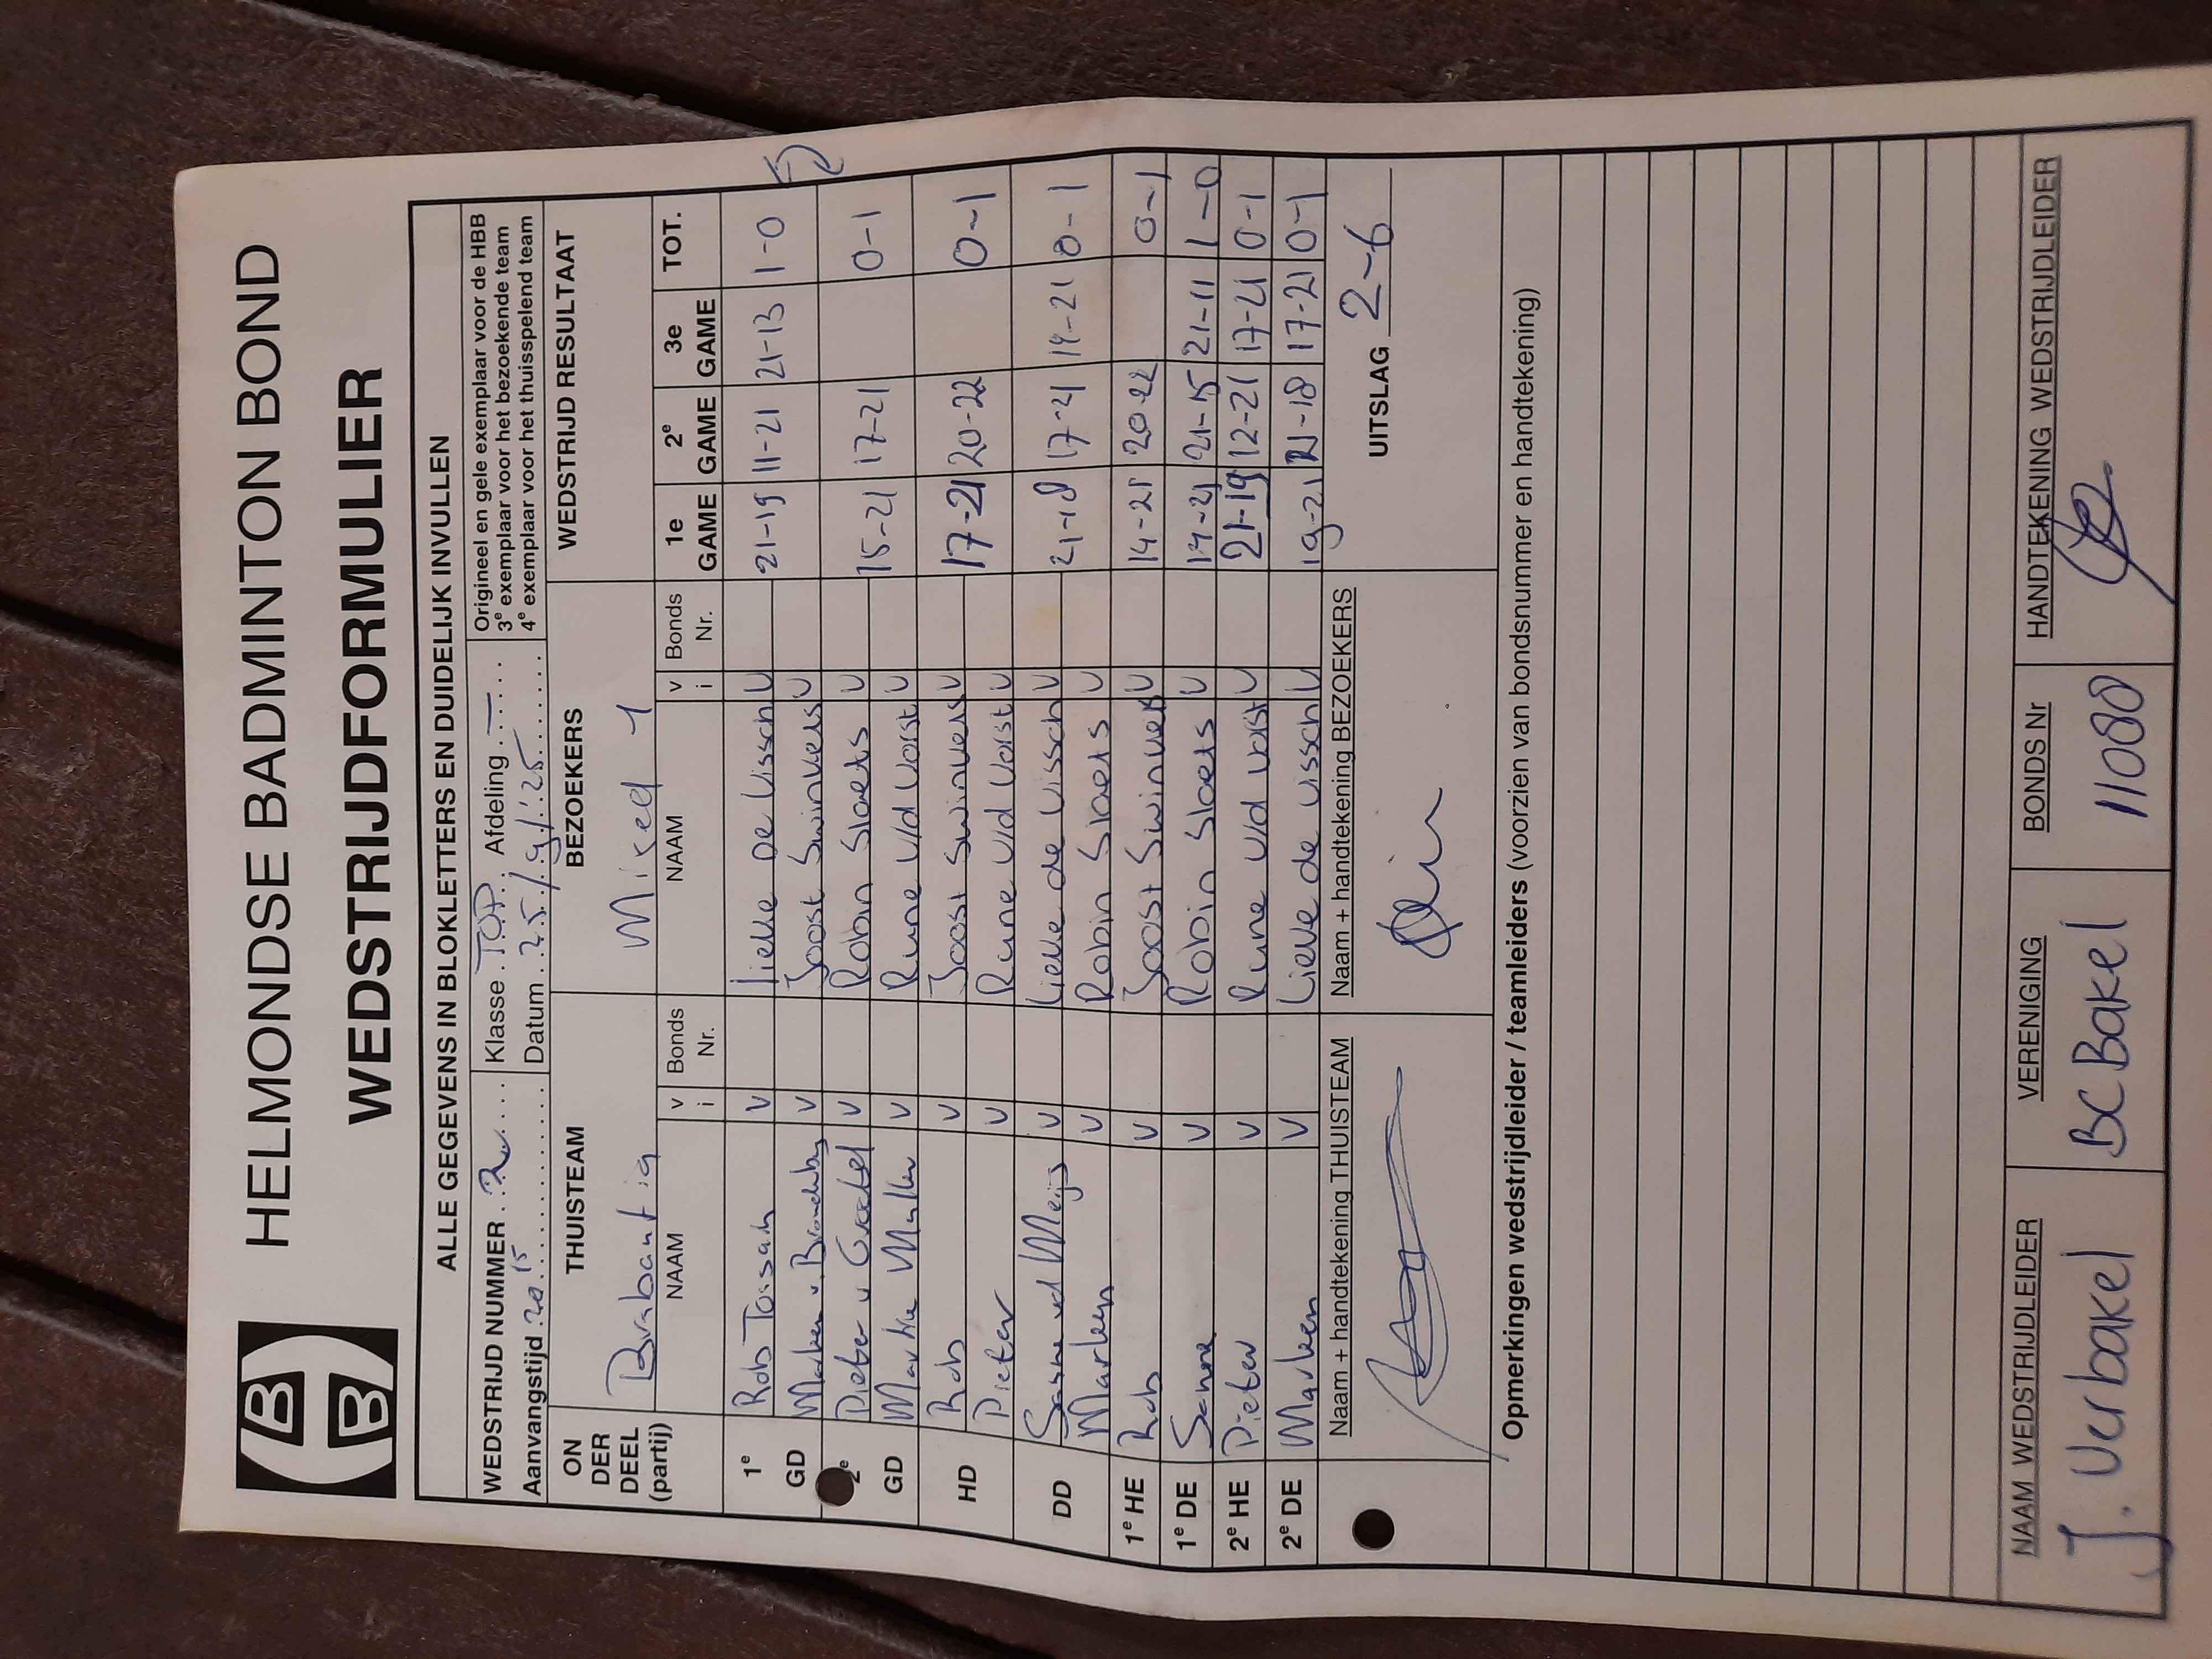 HELMONDSE BADMINTON BOND
WEDSTRIJDFORMULIER
ALLE GEGEVENS IN BLOKLETTERS EN DUIDELIJK INVULLEN
WEDSTRIJD NUMMER 2 Klasse TOP Afdeling —
Aanvangstijd 20.15 Datum 25/9/'25
Origineel en gele exemplaar voor de HBB
3e exemplaar voor het bezoekende team
4e exemplaar voor het thuisspelend team
ON DER DEEL (partij) THUISTEAM BEZOEKERS WEDSTRIJD RESULTAAT
Brabantia Mixed 1
NAAM v i Bonds Nr. NAAM v i Bonds Nr. 1e GAME 2e GAME 3e GAME TOT.
1e GD Rob Tossah V Lieke De Vissch V 21-19 11-21 21-13 1-0
V Joost Swinvels V
2e GD Pieter v V Robin Slaets V 15-21 17-21 0-1
Muller V Rune v/d Vorst V
HD Rob V Joost Swinvels V 17-21 20-22 0-1
Pieter V Rune v/d Vorst V
DD Sanne vd Meijs V Lieke de Vissch V 21-18 17-21 14-21 0-1
Marleen V Robin Slaets V
1e HE Rob V Joost Swinvels V 14-21 20-22 0-1
1e DE Sanne V Robin Slaets V 17-21 21-15 21-11 1-0
2e HE Pieter V Rune v/d Vorst V 21-19 12-21 17-21 0-1
2e DE Marleen V Lieve de Vissch V 19-21 21-18 17-21 0-1
Naam + handtekening THUISTEAM Naam + handtekening BEZOEKERS UITSLAG 2-6
Opmerkingen wedstrijdleider / teamleiders (voorzien van bondsnummer en handtekening)
NAAM WEDSTRIJDLEIDER VERENIGING BONDS Nr HANDTEKENING WEDSTRIJDLEIDER
J. Verbakel BC Bakel 11080